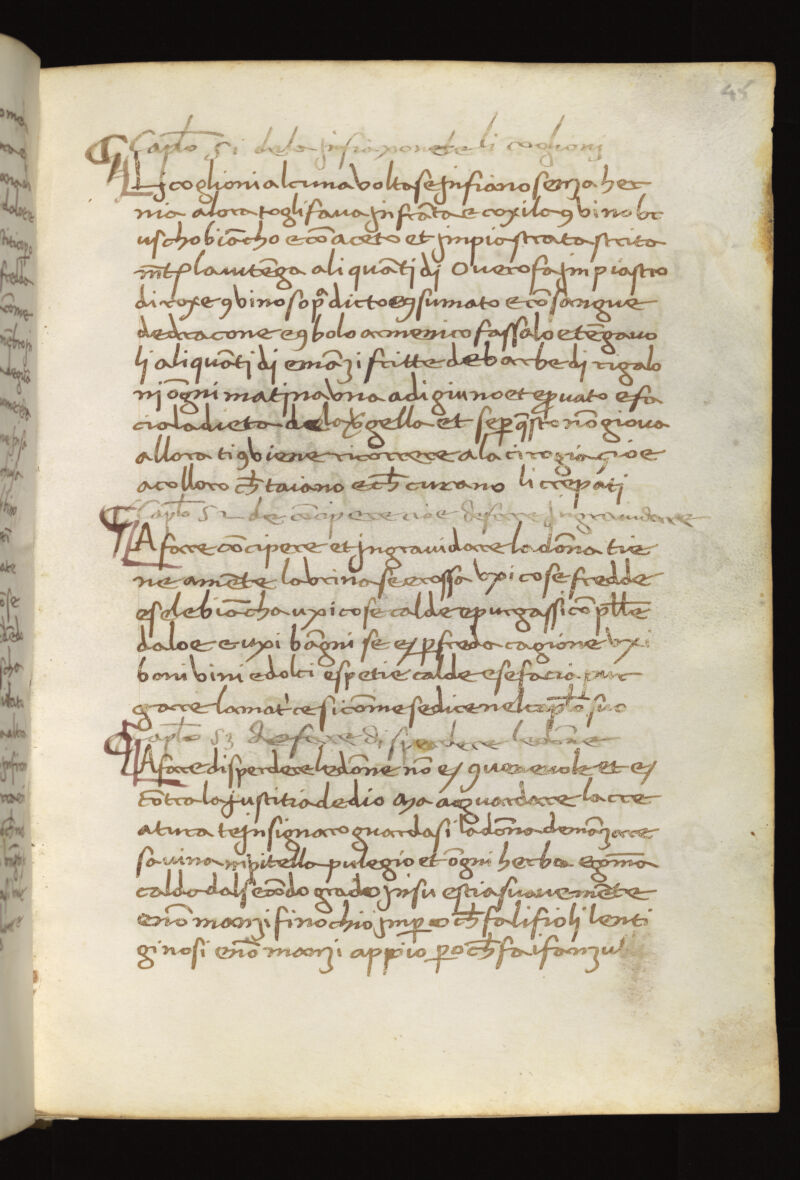 45
Caplo 51 dela infiaxone de li coglioni
Li coglioni alcuna volta se infiano senza her
nia alora togli fava infranta e coxila ꝯ vino br
uscho biācho e cō aceto et impiastrata strita
mte la vi tēga aliquanti di Overo fa impiastro
di roxe ꝯ vino sopra dicto ꝯsumato e cō sangue
de dracone e ꝯ bolo armenico fassalo e tēgavo
li aliquāti di e māzi fritte de barbe di rigalo
ni ōgni matina una a digiuno et e pvato e fa
cia la dieta de la gella et se per qsto nō giova
allora ti ꝯviene ricorrere a la cirogia cioe
a colloro ch taiano e ch curano li crepati
Caplo 52 de cōcipere cioe de fare ingravidare
A fare cōcipere et ingravidare la dōna tie
ne a mēte la urina se e rossa uxi cose fredde
e se le biācha uxi cose calde e purgassi cō pille
daloe e uxi bāgni se ex p freda cagione uxi
boni vini e dolci e spetie calde e se facia pur
gare la matrce si come se dice nel caplo suo
Caplo 53 de fare disperdere le dōne
A fare disperdere le dōne nō ex ꝯvenevole et ex
cōtra la justitia de dio Ma a guardare la cre
atura te insignaro guardasi la dōna de māzare
savina nipitella pulegio et ōgni herba e goma
calda dal secōdo grado in su e stia suavemēte
e nō manzi finochio impero ch fa li fioli lenti
ginosi e nō manzi appio pero ch fa i fanzu